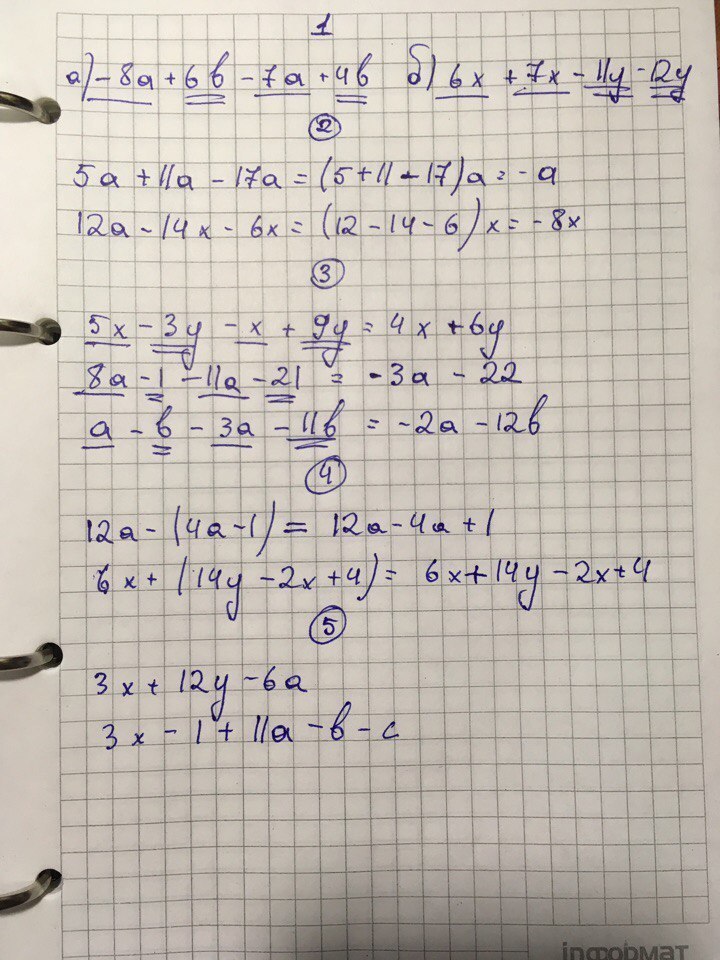 1
а) -8a + 6b - 7a + 4b б) 6x + 7x - 11y - 12y
2
5a + 11a - 17a = (5 + 11 - 17)a = - a
12a - 14x - 6x = (12 - 14 - 6)x = - 8x
3
5x - 3y - x + 9y = 4x + 6y
8a - 1 - 11a - 21 = - 3a - 22
a - b - 3a - 11b = -2a - 12b
4
12a - (4a - 1) = 12a - 4a + 1
6x + (14y - 2x + 4) = 6x + 14y - 2x + 4
5
3x + 12y - 6a
3x - 1 + 11a - b - c
інформат